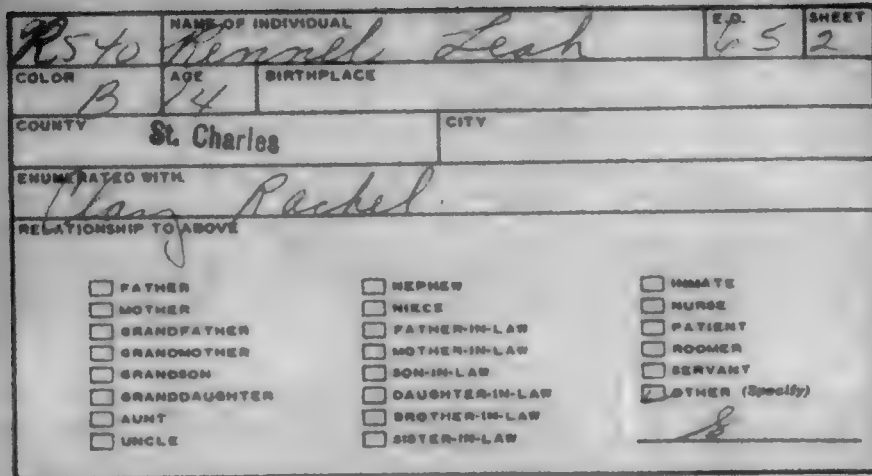 R540
NAME OF INDIVIDUAL
Rennel Leah
E.D.
65
SHEET
2
COLOR
B
AGE
14
BIRTHPLACE
COUNTY
St. Charles
CITY
ENUMERATED WITH
Rachel.
RELATIONSHIP TO ABOVE
FATHER
MOTHER
GRANDFATHER
GRANDMOTHER
GRANDSON
GRANDDAUGHTER
AUNT
UNCLE
NEPHEW
NIECE
FATHER-IN-LAW
MOTHER-IN-LAW
SON-IN-LAW
DAUGHTER-IN-LAW
BROTHER-IN-LAW
SISTER-IN-LAW
INMATE
NURSE
PATIENT
ROOMER
SERVANT
OTHER (Specify)
S